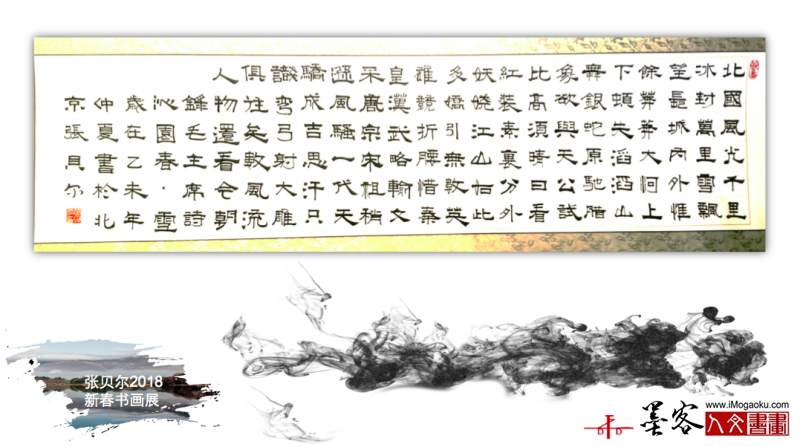 北國風光千里
冰封萬里雪飄
望長城內外惟
餘莽莽大河上
下頓失滔滔山
舞銀蛇原馳腊
象欲與天公試
比高須晴日看
紅裝素裹分外
妖嬈江山如此
多嬌引無數英
雄競折腰惜秦
皇漢武略輸文
采唐宗宋祖稍
遜風騷一代天
驕成吉思汗只
識彎弓射大雕
俱往矣數風流
人物還看今朝
錄毛主席詩
沁園春·雪
歲在乙未年
仲夏書於北
京張貝尔
张贝尔2018
新春书画展
墨客
人文書畫
www.iMogaoku.com